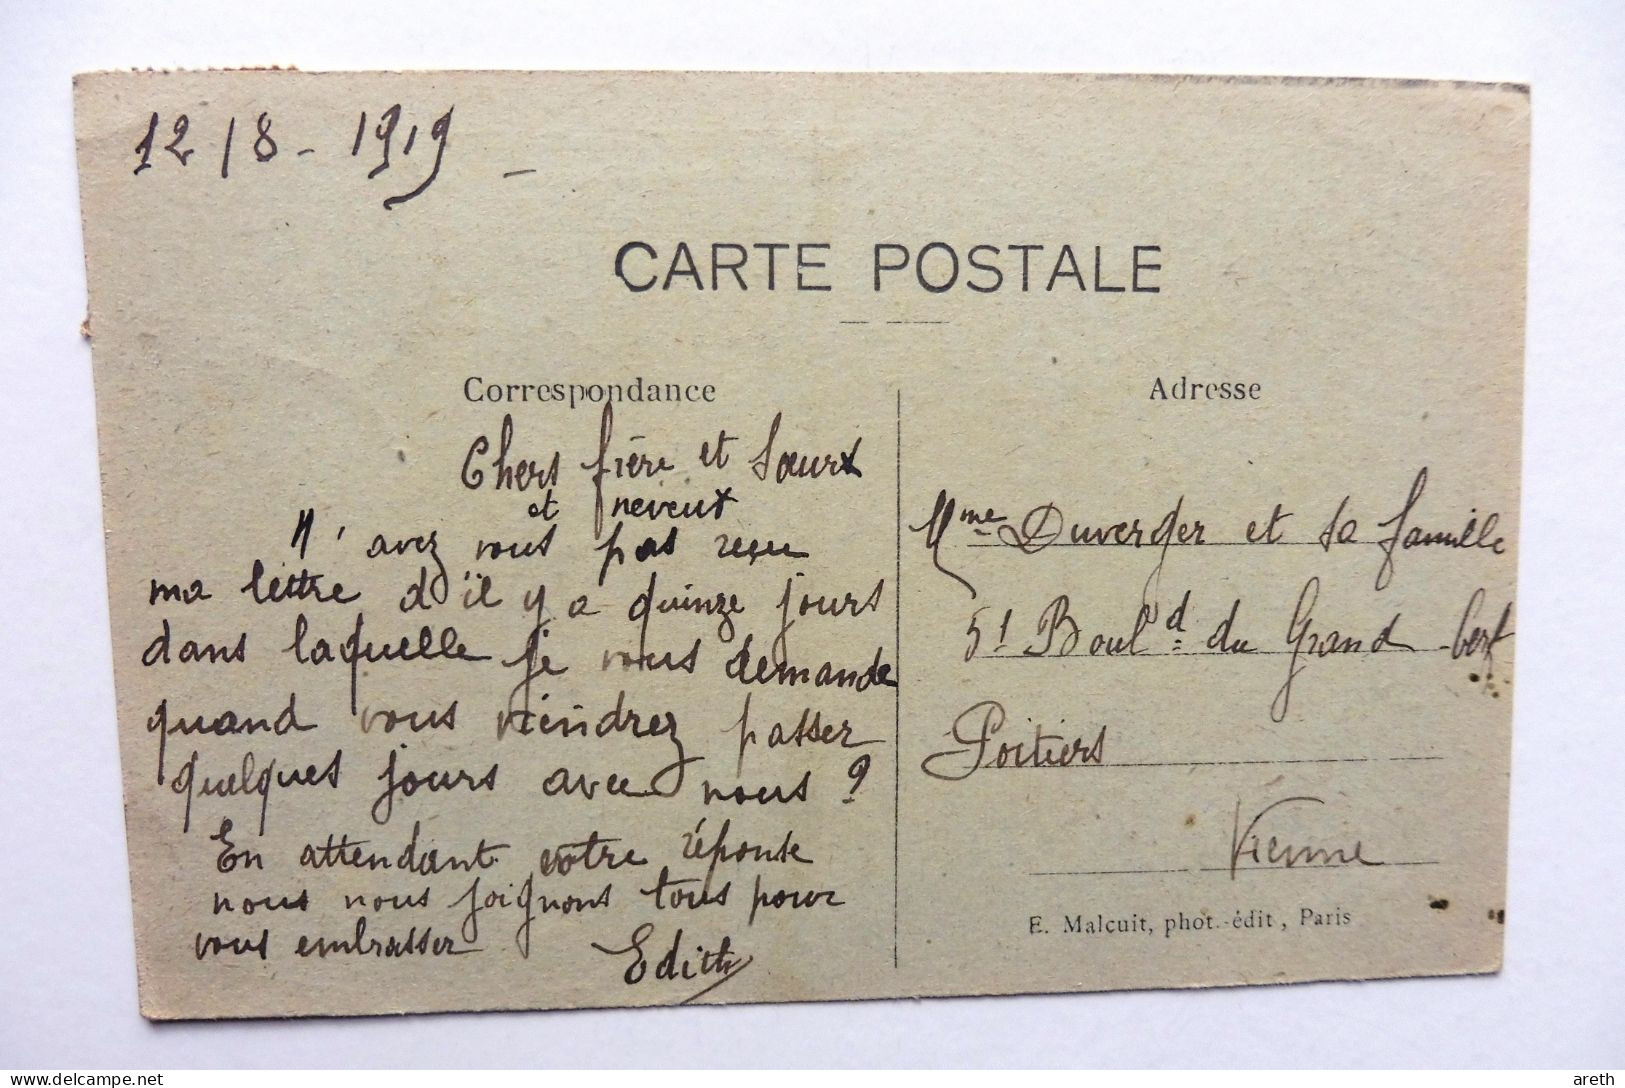 12/8 - 1919 -
CARTE POSTALE
Correspondance
Chers frère et sœurx
et neveux
N'avez vous pas reçu
ma lettre d'il y a quinze jours
dans laquelle je vous demande
quand vous viendrez passer
quelques jours avec nous ?
En attendant votre réponse
nous nous joignons tous pour
vous embrasser
Edith
Adresse
Mme Duverger et sa famille
51 Boul.d du Grand Cerf
Poitiers
Vienne
E. Malcuit, phot.-édit, Paris
delcampe.net
areth